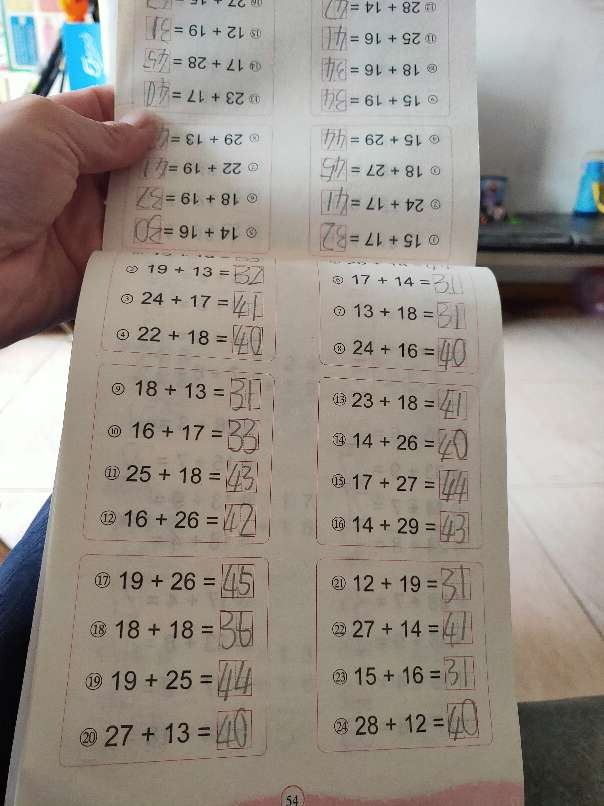 ① 15 + 17 = 32
② 24 + 17 = 41
③ 18 + 27 = 45
④ 15 + 29 = 44
⑤ 14 + 16 = 30
⑥ 18 + 19 = 37
⑦ 22 + 19 = 41
⑧ 29 + 13 =
⑨ 15 + 19 = 34
⑩ 18 + 16 = 34
⑪ 25 + 16 = 41
⑫ 28 + 14 = 42
⑬ 23 + 17 = 40
⑭ 17 + 28 = 45
⑮ 12 + 19 = 31
② 19 + 13 = 32
③ 24 + 17 = 41
④ 22 + 18 = 40
⑥ 17 + 14 = 31
⑦ 13 + 18 = 31
⑧ 24 + 16 = 40
⑨ 18 + 13 = 31
⑩ 16 + 17 = 33
⑪ 25 + 18 = 43
⑫ 16 + 26 = 42
⑬ 23 + 18 = 41
⑭ 14 + 26 = 40
⑮ 17 + 27 = 44
⑯ 14 + 29 = 43
⑰ 19 + 26 = 45
⑱ 18 + 18 = 36
⑲ 19 + 25 = 44
⑳ 27 + 13 = 40
㉑ 12 + 19 = 31
㉒ 27 + 14 = 41
㉓ 15 + 16 = 31
㉔ 28 + 12 = 40
54